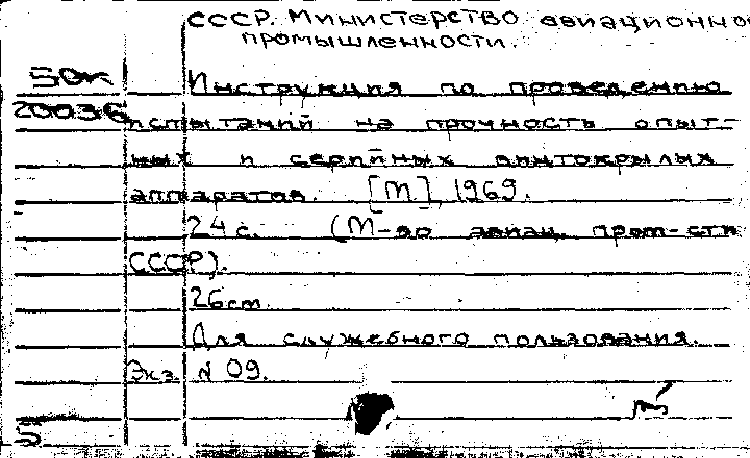 СССР. Министерство авиационно
промышленности.
50к
Инструкция по проведению
20036
испытаний на прочность опыт-
ных и серийных винтокрылых
аппаратов. [М], 1969.
24 с. (М-во авиац. пром-сти
СССР).
26 см.
Для служебного пользования.
Экз. № 09.
5